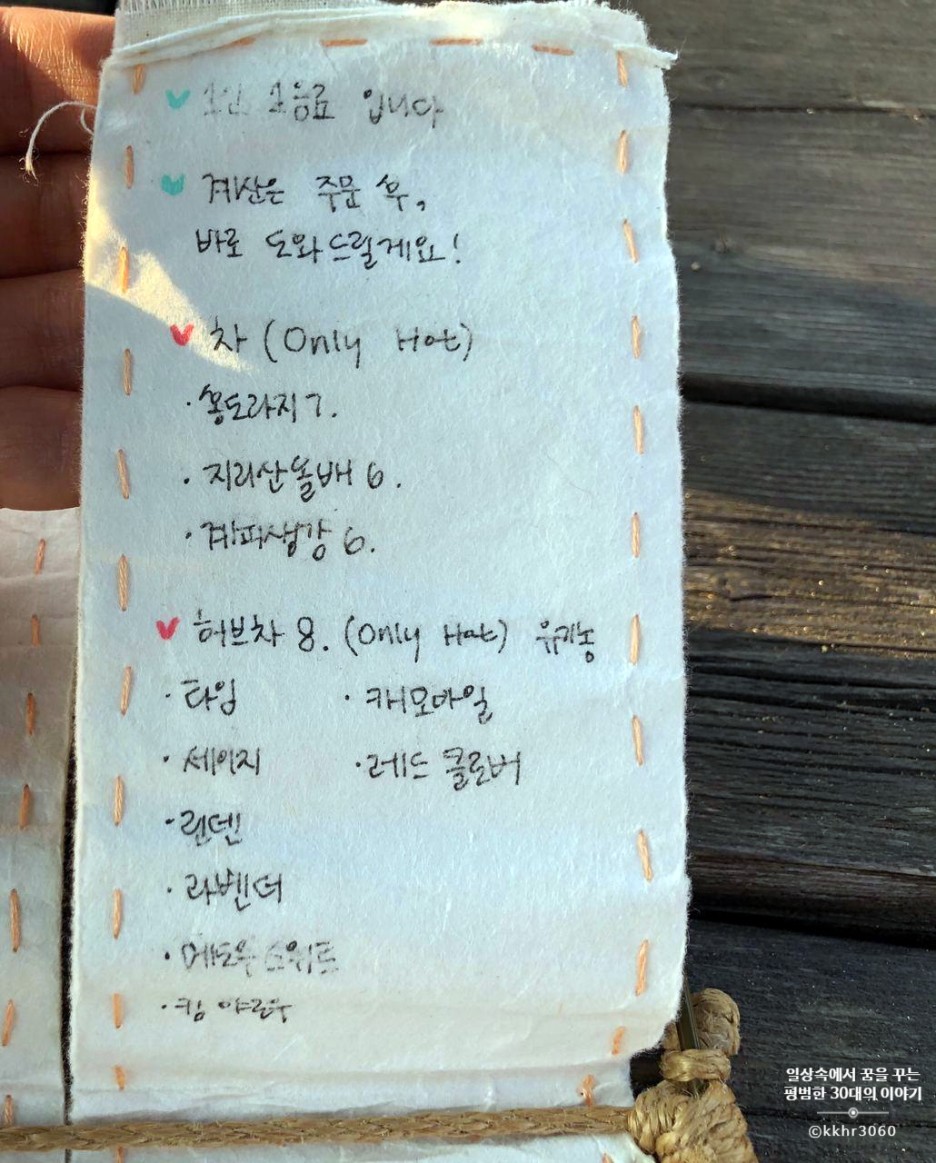 1인 1음료 입니다
계산은 주문 후,
바로 도와드릴게요!
차 (Only Hot)
· 꽃도라지 7.
· 지리산돌배 6.
· 계피생강 6.
허브차 8. (Only Hot) 유기농
· 타임 · 캐모마일
· 세이지 · 레드 클로버
· 린덴
· 라벤더
· 메도우스위트
· 야로우
일상속에서 꿈을 꾸는
평범한 30대의 이야기
©kkhr3060